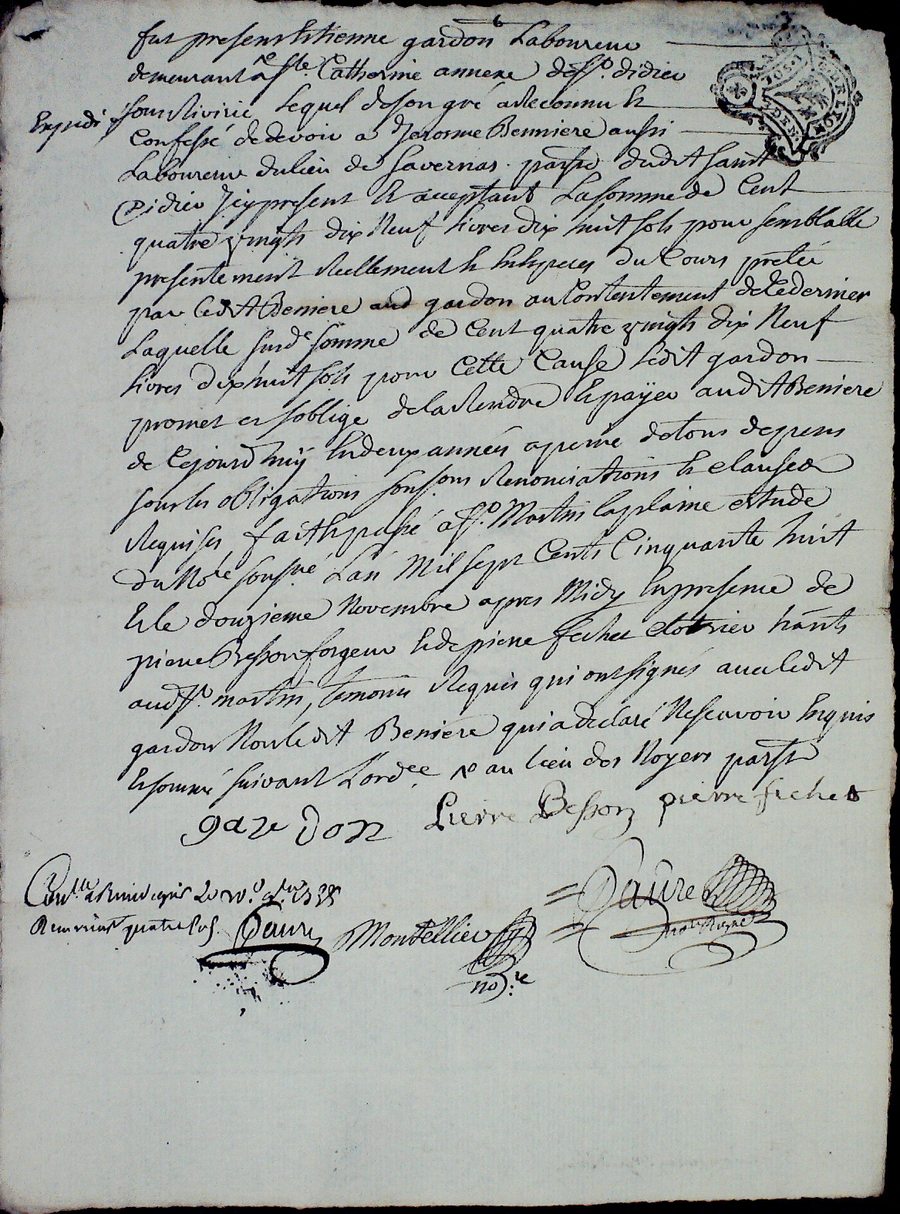 fut present Estienne gardon Laboureur
demeurant a Ste Catherine annexe de St. didier
Expedié
sous Riverie Lequel de son gré a Reconnu Et
Confessé de devoir a Jerome Benniere aussi
Laboureur du lieu de Savernas. parsse dudit saint
Didier Icy present Et acceptant La somme de Cent
quatre vingts dix Neuf Livres dix huit sols pour semblable
presentement Reellement Et En Especes du Cours pretée
par Ledit Beniere aud gardon au Contentement de Ce dernier
Laquelle surde somme de Cent quatre vingts dix Neuf
Livres dix huit sols pour Cette Cause Ledit gardon
promet et s'oblige de la Rendre Et payer audit Beniere
de Ce jourd'huy En deux années a peine de tous depens
sous les obligations soussions Renonciations Et Clauses
Requises fait Et passé a St. Martin la plaine Etude
du Nore soussné L'an Mil sept Cents Cinquante huit
Et le douzieme Novembre apres Midy En presence de
pierre Besson forgeur Et de pierre fechet Clotrier hants
aud St. martin, temoins Requis qui ont signés avec Ledit
gardon Non Ledit Beniere qui a declaré Ne scavoir Enquis
Et sommé suivant L'ordce au lieu des Royers parsse
garedon Pierre Besson pierre fechet
Conlle a Rivedegier Le
Reçu quatre sols. Faure Montellier
nore
Faure
nore Royal
DE LYON
DEN